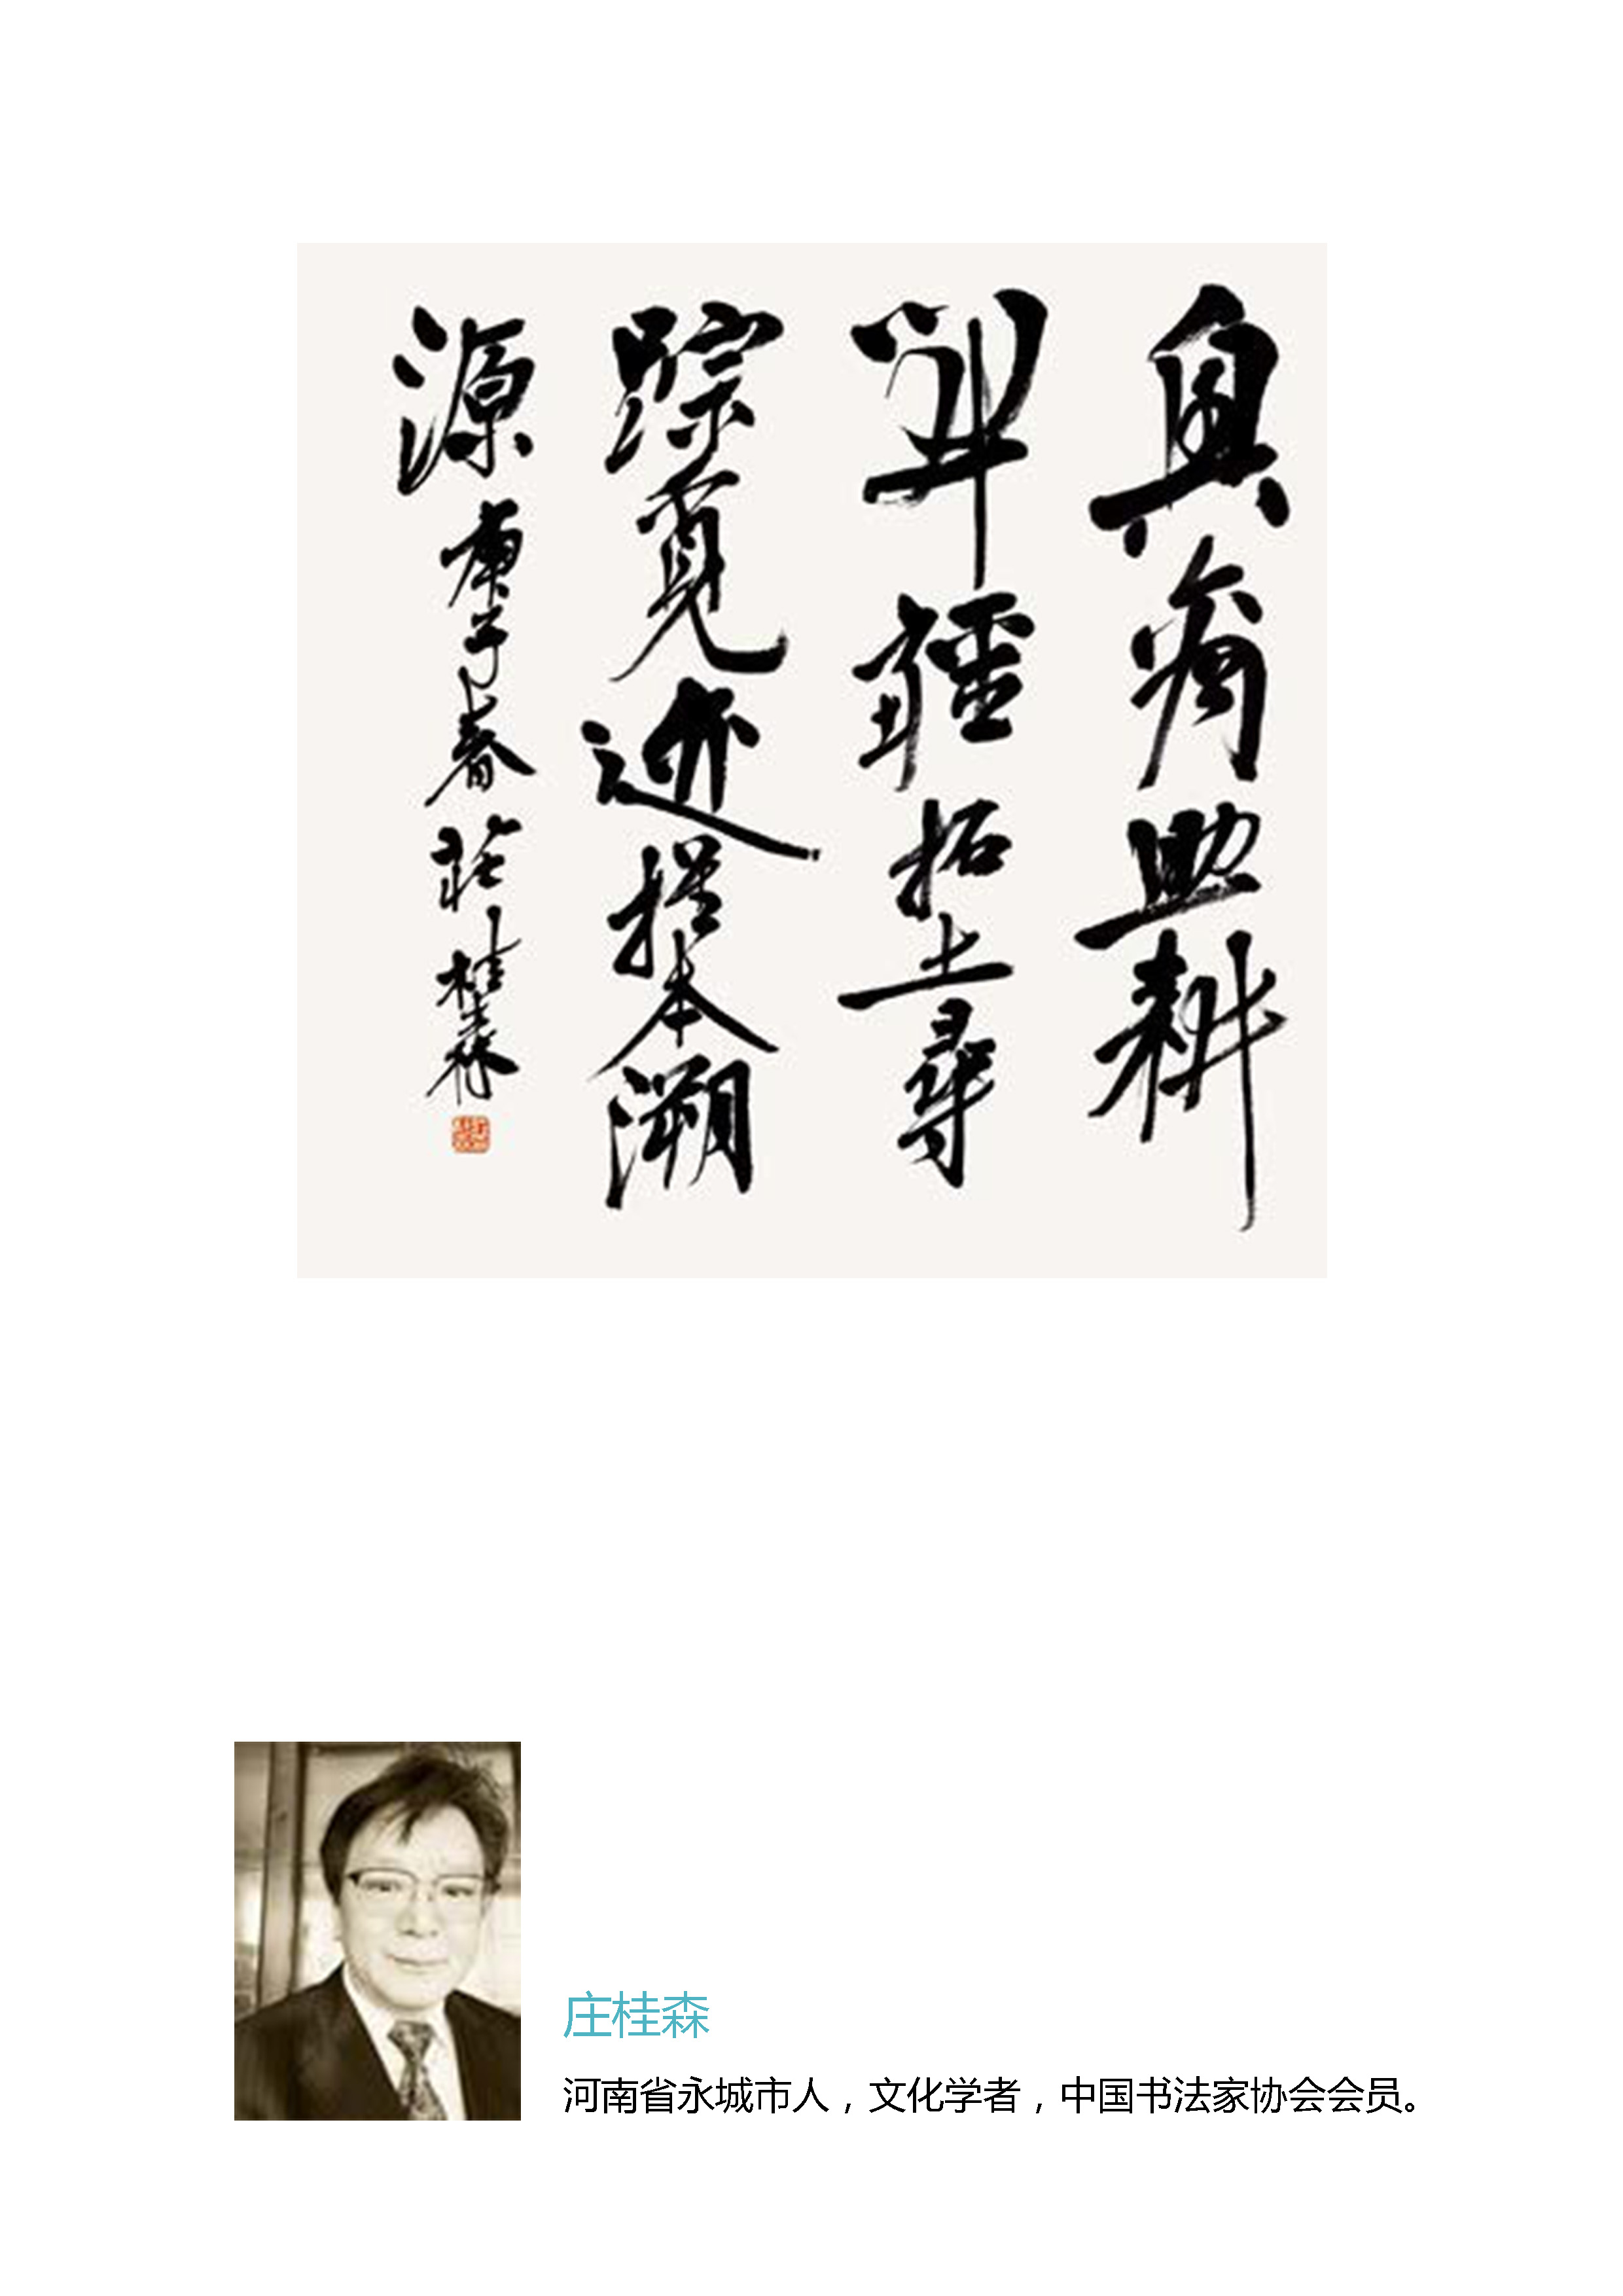 耕
疆拓土尋
踪覓迹探本溯
源 庚子春 莊桂森
庄桂森
河南省永城市人，文化学者，中国书法家协会会员。